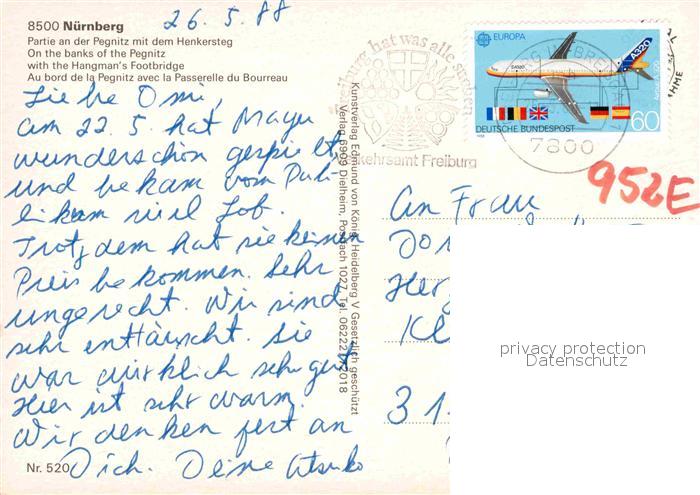 26.5.88
8500 Nürnberg
Partie an der Pegnitz mit dem Henkersteg
On the banks of the Pegnitz
with the Hangman's Footbridge
Au bord de la Pegnitz avec la Passerelle du Bourreau
Liebe Omi,
am 22.5. hat Mayu
wunderschön gespielt,
und bekam vom Pub-
likum viel Lob.
Trotzdem hat sie keinen
Preis bekommen. Sehr
ungerecht. Wir sind
sehr enttäuscht. Sie
war wirklich sehr gut.
Hier ist sehr warm.
Wir denken fest an
Dich. Deine Atsuko
Nr. 520
Kunstverlag Edmund von König, Heidelberg V Gesetzlich geschützt
Verlag 6909 Dielheim, Postfach 1027, Tel. 06222/72018
hat was alle suchen
Verkehrsamt Freiburg
EUROPA
A320
DEUTSCHE BUNDESPOST
60
7800
952E
An Frau
31
privacy protection
Datenschutz